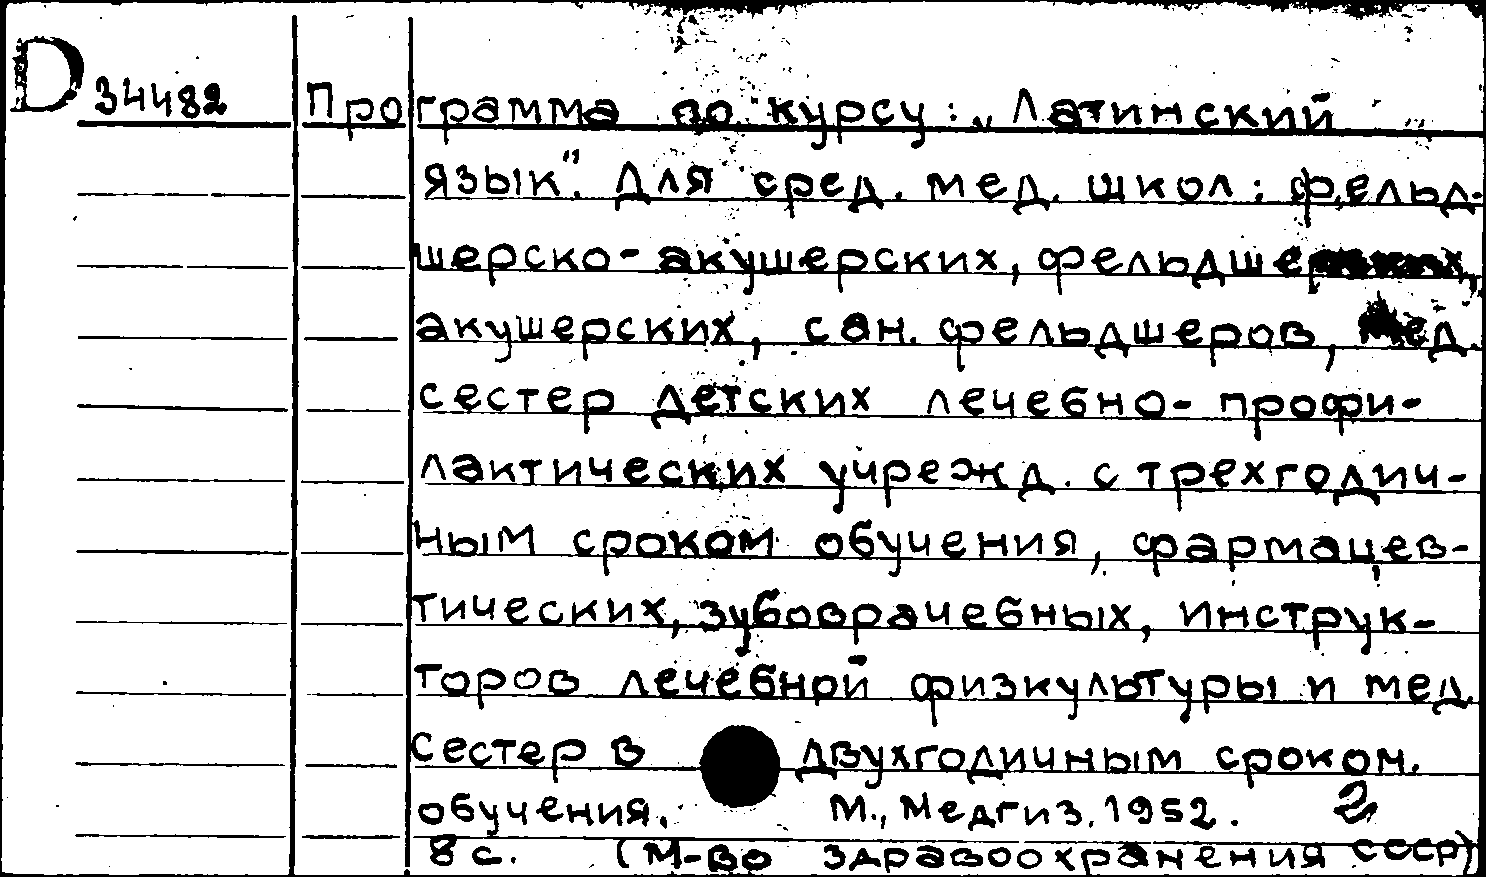 D 34482 Программа по курсу: „Латинский
язык". Для сред. мед. школ: фельд-
шерско-акушерских, фельдшерских,
акушерских, сан. фельдшеров, мед.
сестер детских лечебно-профи-
лактических учрежд. с трехгодич-
ным сроком обучения, фармацев-
тических, зубоврачебных, инструк-
торов лечебной физкультуры и мед.
сестер в двухгодичным сроком.
обучения. М., Медгиз. 1952.
8 с. (М-во здравоохранения СССР)